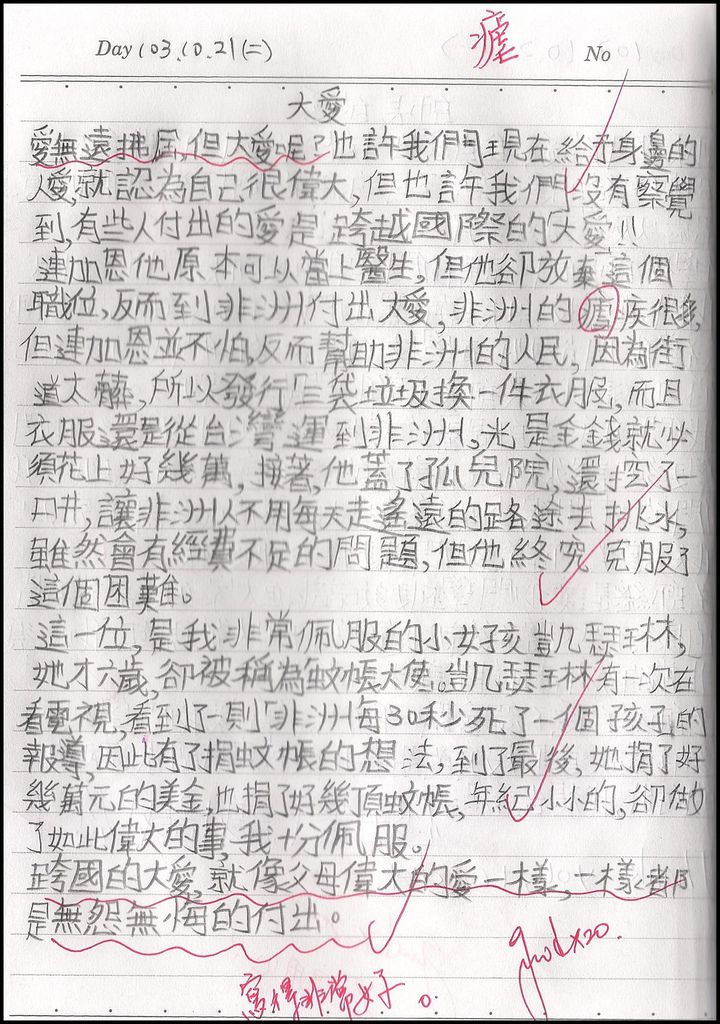 瘧
Day 103.10.21(二) No
大愛
愛無遠弗屆,但大愛呢?也許我們現在給予身邊的
人愛,就認為自己很偉大,但也許我們沒有察覺
到,有些人付出的愛是跨越國際的「大愛」!!
連加恩他原本可以當上醫生,但他卻放棄這個
職位,反而到非洲付出大愛,非洲的瘧疾很多,
但連加恩並不怕,反而幫助非洲的人民,因為街
道太髒,所以發行「三袋垃圾換一件衣服,而且
衣服還是從台灣運到非洲,光是金錢就必
須花上好幾萬,接著,他蓋了孤兒院,還挖了一
口井,讓非洲人不用每天走遙遠的路途去挑水,
雖然會有經費不足的問題,但他終究克服了
這個困難。
這一位,是我非常佩服的小女孩凱瑟琳,
她才六歲,卻被稱為蚊帳大使。凱瑟琳有一次在
看電視,看到了一則「非洲每30秒死了一個孩子」的
報導,因此有了捐蚊帳的想法,到了最後,她捐了好
幾萬元的美金,也捐了好幾頂蚊帳,年紀小小的,卻做
了如此偉大的事,我十分佩服。
跨國的大愛,就像父母偉大的愛一樣,一樣都
是無怨無悔的付出。
good×20.
寫得非常好。